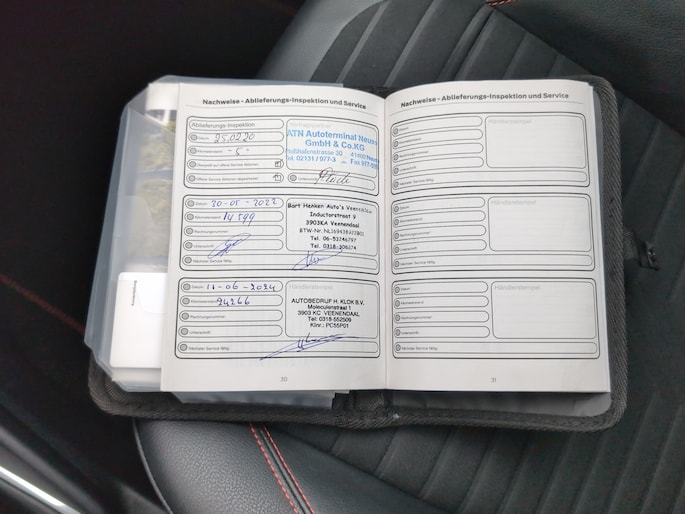 Nachweise - Ablieferungs-Inspektion und Service
Ablieferungs-Inspektion
Datum 25.02.20
Kilometerstand -5-
Offene Service Aktionen abgearbeitet
Unterschrift
ATN Autoterminal Neuss
GmbH & Co.KG
Floßhafenstrasse 30 41460 Neuss
Tel. 02131 / 977-3 Fax 977-
Datum 30-05-2022
Kilometerstand 14599
Rechnungsnummer
Unterschrift
Nächster Service fällig
Bart Henken Auto's Veenendaal
Inductorstraat 9
3903KA Veenendaal
BTW-Nr.
Tel. 06-53246797
Tel. 0318-508274
Datum 11-06-2024
Kilometerstand 24266
Rechnungsnummer
Unterschrift
Nächster Service fällig
Händlerstempel
AUTOBEDRIJF H. KLOK B.V.
Moleculenstraat 1
3903 KC VEENENDAAL
Tel: 0318-552509
Klnr.: PC55P01
30
Nachweise - Ablieferungs-Inspektion und Service
Datum
Kilometerstand
Rechnungsnummer
Unterschrift
Nächster Service fällig
Händlerstempel
Datum
Kilometerstand
Rechnungsnummer
Unterschrift
Nächster Service fällig
Händlerstempel
Datum
Kilometerstand
Rechnungsnummer
Unterschrift
Nächster Service fällig
Händlerstempel
31